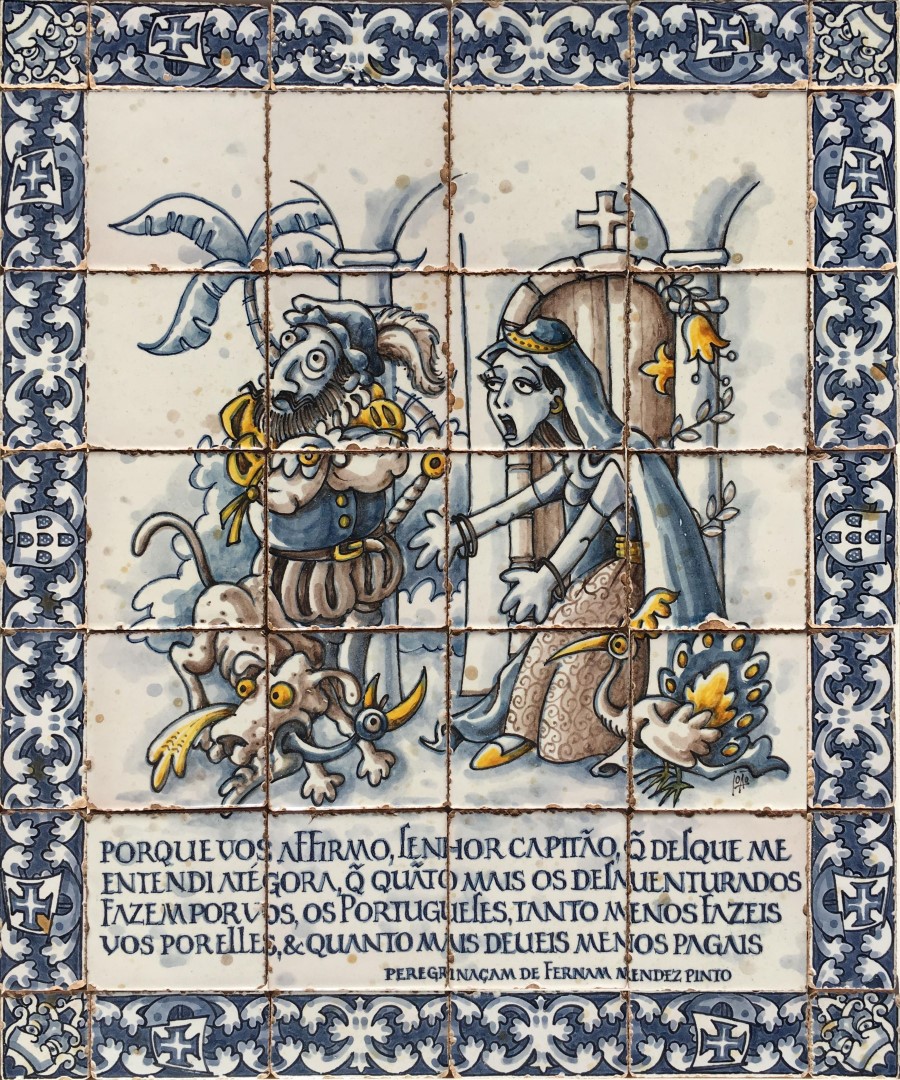 PORQUE VOS AFFIRMO, ſENHOR CAPITÃO, Q̃ DEſQUE ME
ENTENDI ATÉGORA, Q̃ QUÃTO MAIS OS DEſAUENTURADOS
FAZEM POR VOS, OS PORTUGUEſES, TANTO MENOS FAZEIS
VOS POR ELLES, & QUANTO MAIS DEUEIS MENOS PAGAIS
PEREGRINAÇAM DE FERNAM MENDEZ PINTO